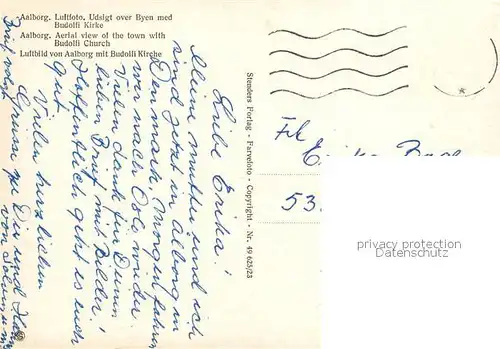 Aalborg. Luftfoto. Udsigt over Byen med
Budolfi Kirke
Aalborg. Aerial view of the town with
Budolfi Church
Luftbild von Aalborg mit Budolfi Kirche
Liebe Erika!
Meine Mutter und ich
sind jetzt in Alborg in
Denmark, Morgen fahren
wir nach Oslo wieder.
Vielen dank für Deinen
lieben Brief mit Bilder!
Hoffentlich geht es euch
gut.
Vielen herzlichen
Grüsse zu Dir und
von
Stenders Forlag - Farvefoto - Copyright - Nr. 49 625/23
Frl.
53.
privacy protection
AnsichtskartenVersand.com